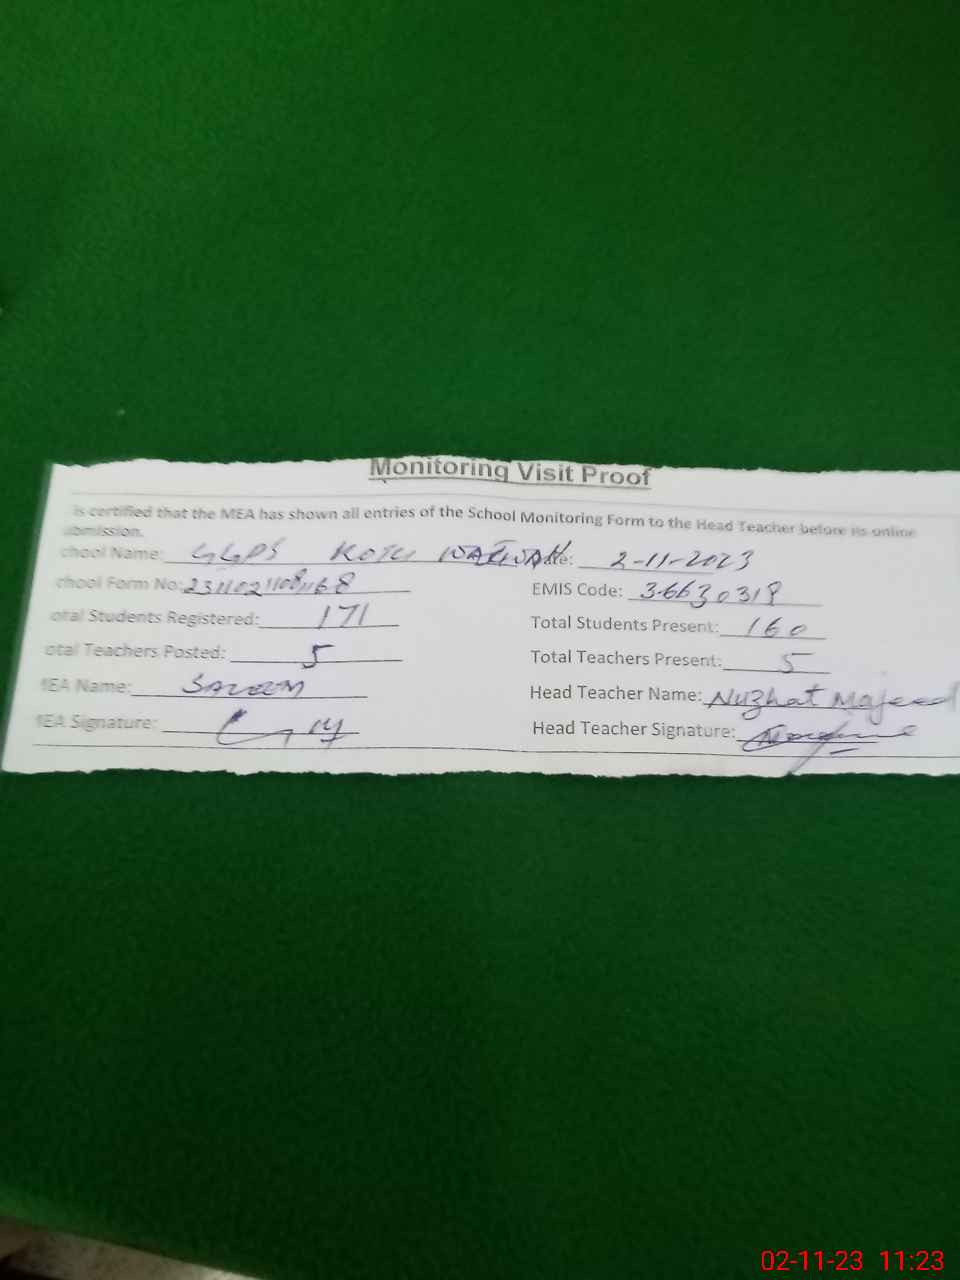 Monitoring Visit Proof
is certified that the MEA has shown all entries of the School Monitoring Form to the Head Teacher before its online
ubmission.
chool Name: GGPS KOTLI Date: 2-11-2023
chool Form No: EMIS Code: 36630318
otal Students Registered: 171 Total Students Present: 160
otal Teachers Posted: 5 Total Teachers Present: 5
MEA Name: SALEEM Head Teacher Name: Nuzhat Majeed
MEA Signature: Head Teacher Signature:
02-11-23 11:23